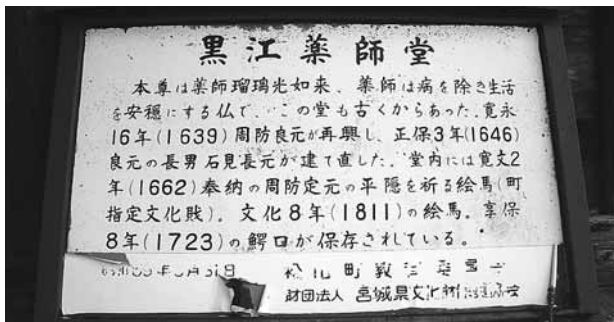 黒江薬師堂
本尊は薬師瑠璃光如来、薬師は病を除き生活
を安穏にする仏で、この堂も古くからあった。寛永
16年(1639)周防良元が再興し、正保3年(1646)
良元の長男石見長元が建て直した。堂内には寛文2
年(1662)奉納の周防定元の平隠を祈る絵馬(町
指定文化財)。文化8年(1811)の絵馬。享保
8年(1723)の鰐口が保存されている。
町教育委員会
財団法人 宮城県文化財